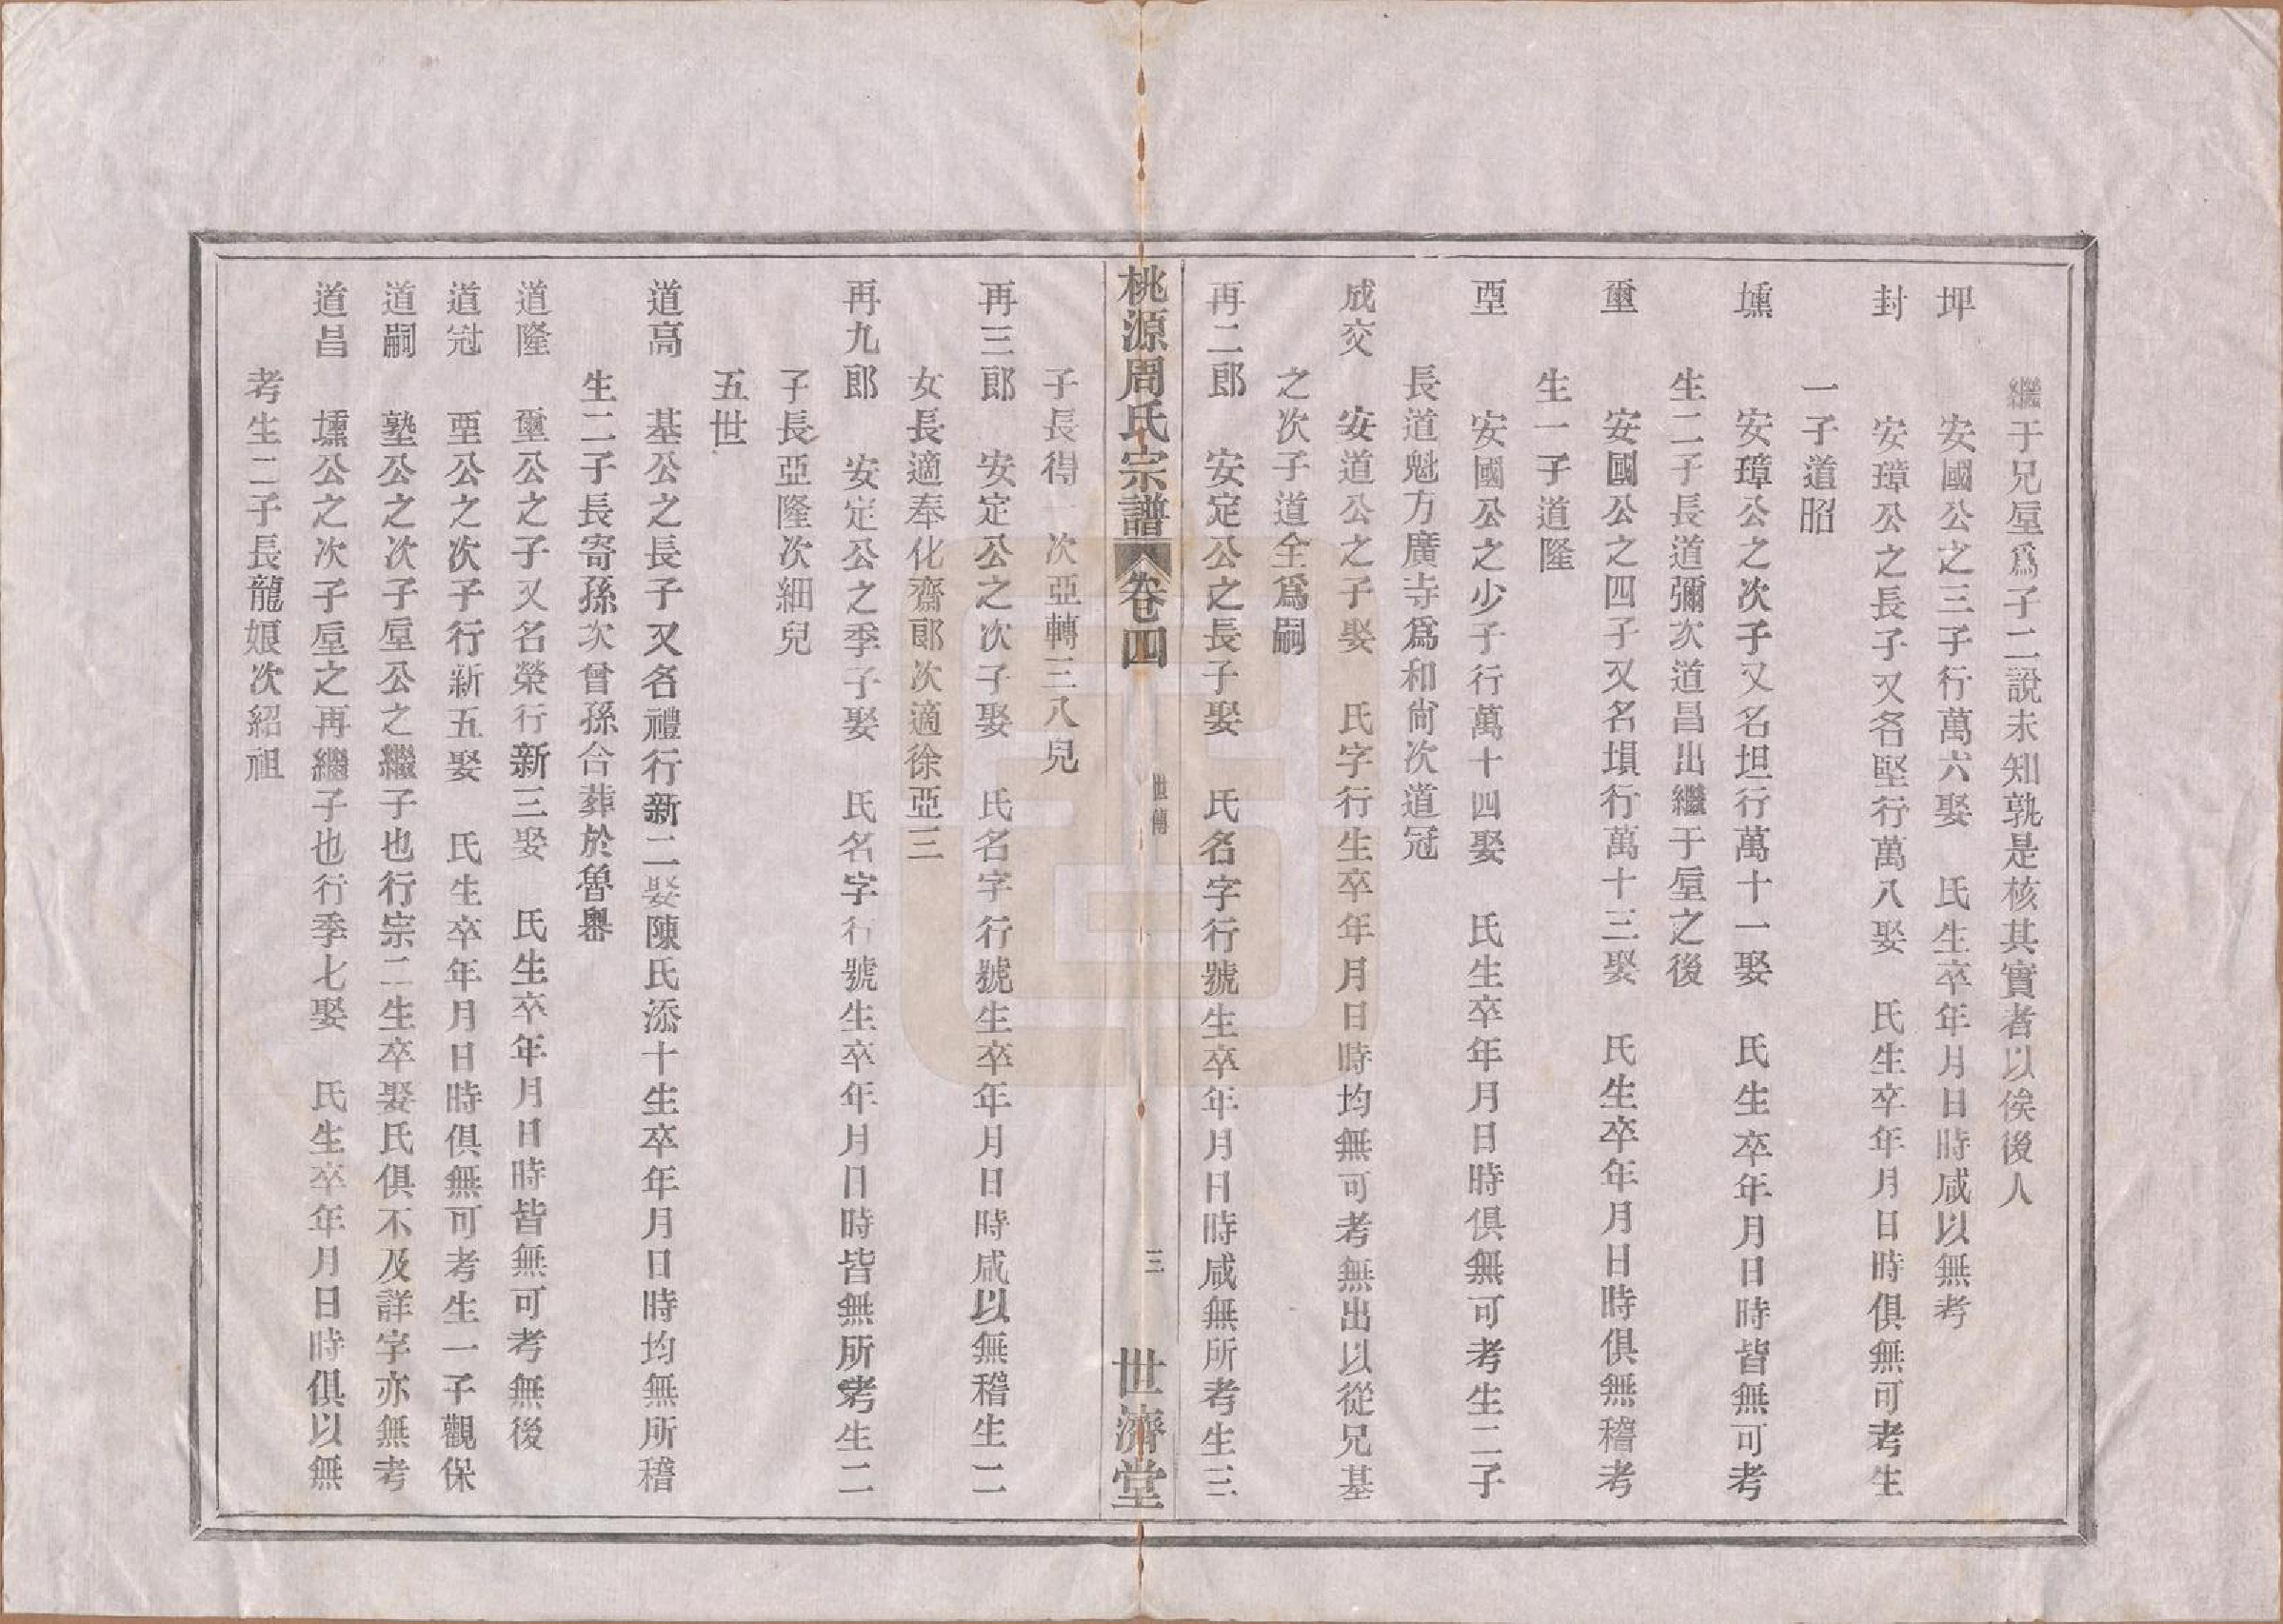 繼于兄垕爲子二說未知孰是核其實者以俟後人
坪　安國公之三子行萬六娶　氏生卒年月日時咸以無考
封　安璋公之長子又名堅行萬八娶　氏生卒年月日時俱無可考生
一子道昭
壎　安璋公之次子又名坦行萬十一娶　氏生卒年月日時皆無可考
生二子長道彌次道昌出繼于垕之後
壐　安國公之四子又名塤行萬十三娶　氏生卒年月日時俱無稽考
生一子道隆
垔　安國公之少子行萬十四娶　氏生卒年月日時俱無可考生二子
長道魁方廣寺爲和尙次道冠
成交　安道公之子娶　氏字行生卒年月日時均無可考無出以從兄基
之次子道全爲嗣
再二郎　安定公之長子娶　氏名字行號生卒年月日時咸無所考生三
桃源周氏宗譜　卷四　世傳　三　世濟堂
子長得一次亞轉三八兒
再三郎　安定公之次子娶　氏名字行號生卒年月日時咸以無稽生二
女長適奉化齋郎次適徐亞三
再九郎　安定公之季子娶　氏名字行號生卒年月日時皆無所考生二
子長亞隆次細兒
五世
道高　基公之長子又名禮行新二娶陳氏添十生卒年月日時均無所稽
生二子長寄孫次曾孫合葬於魯嶴
道隆　壐公之子又名榮行新三娶　氏生卒年月日時皆無可考無後
道冠　垔公之次子行新五娶　氏生卒年月日時俱無可考生一子觀保
道嗣　塾公之次子垕公之繼子也行宗二生卒娶氏俱不及詳字亦無考
道昌　壎公之次子垕之再繼子也行季七娶　氏生卒年月日時俱以無
考生二子長龍娘次紹祖